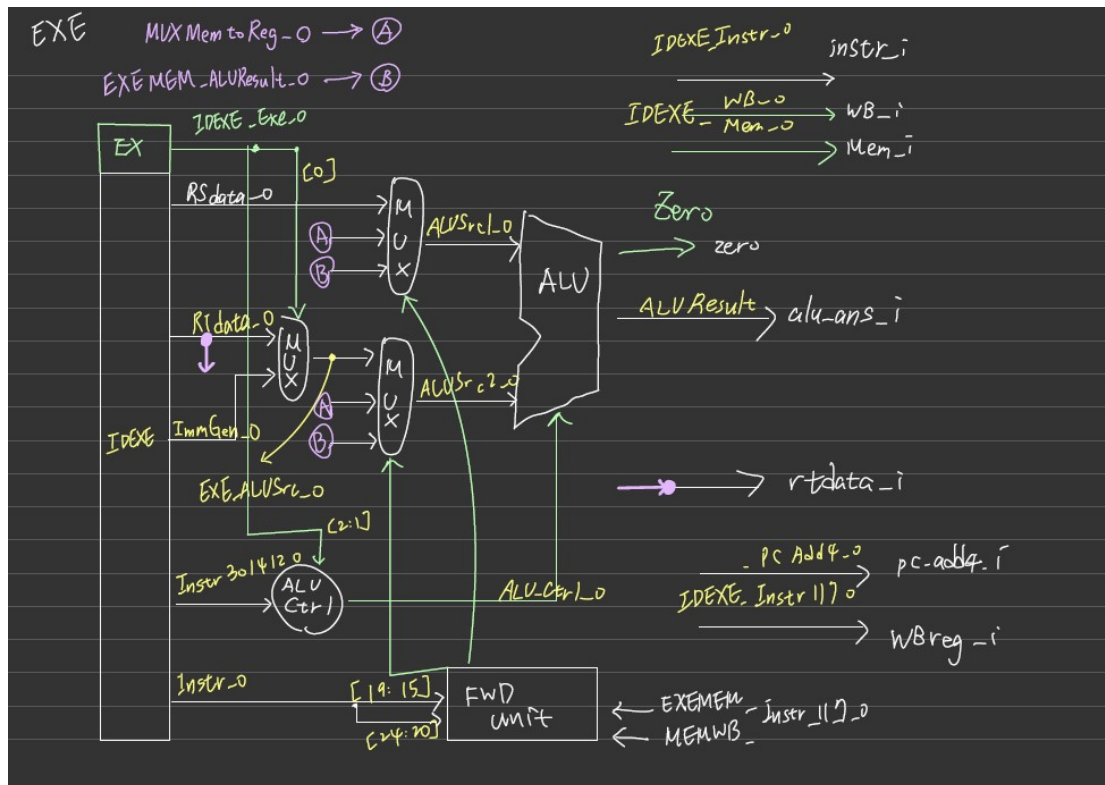 EXE
MUXMemtoReg_o → Ⓐ
EXEMEM_ALUResult_o → Ⓑ
IDEXE_Instr_o
instr_i
IDEXE_ WB_o
WB_i
Mem_o
Mem_i
IDEXE_Exe_o
EX
[0]
RSdata_o
M
U
X
A
B
ALUSrc1_o
ALU
Zero
zero
ALUResult
alu_ans_i
RTdata_o
M
U
X
M
U
X
A
B
ALUSrc2_o
IDEXE
ImmGen_o
EXE_ALUSrc_o
rtdata_i
[2:1]
Instr301412_o
ALU
Ctrl
ALU_Ctrl_o
_PC Add4_o
pc_add4_i
IDEXE_Instr117_o
WBreg_i
Instr_o
[19:15]
[24:20]
FWD
unit
← EXEMEM_
← MEMWB_
Instr_117_o